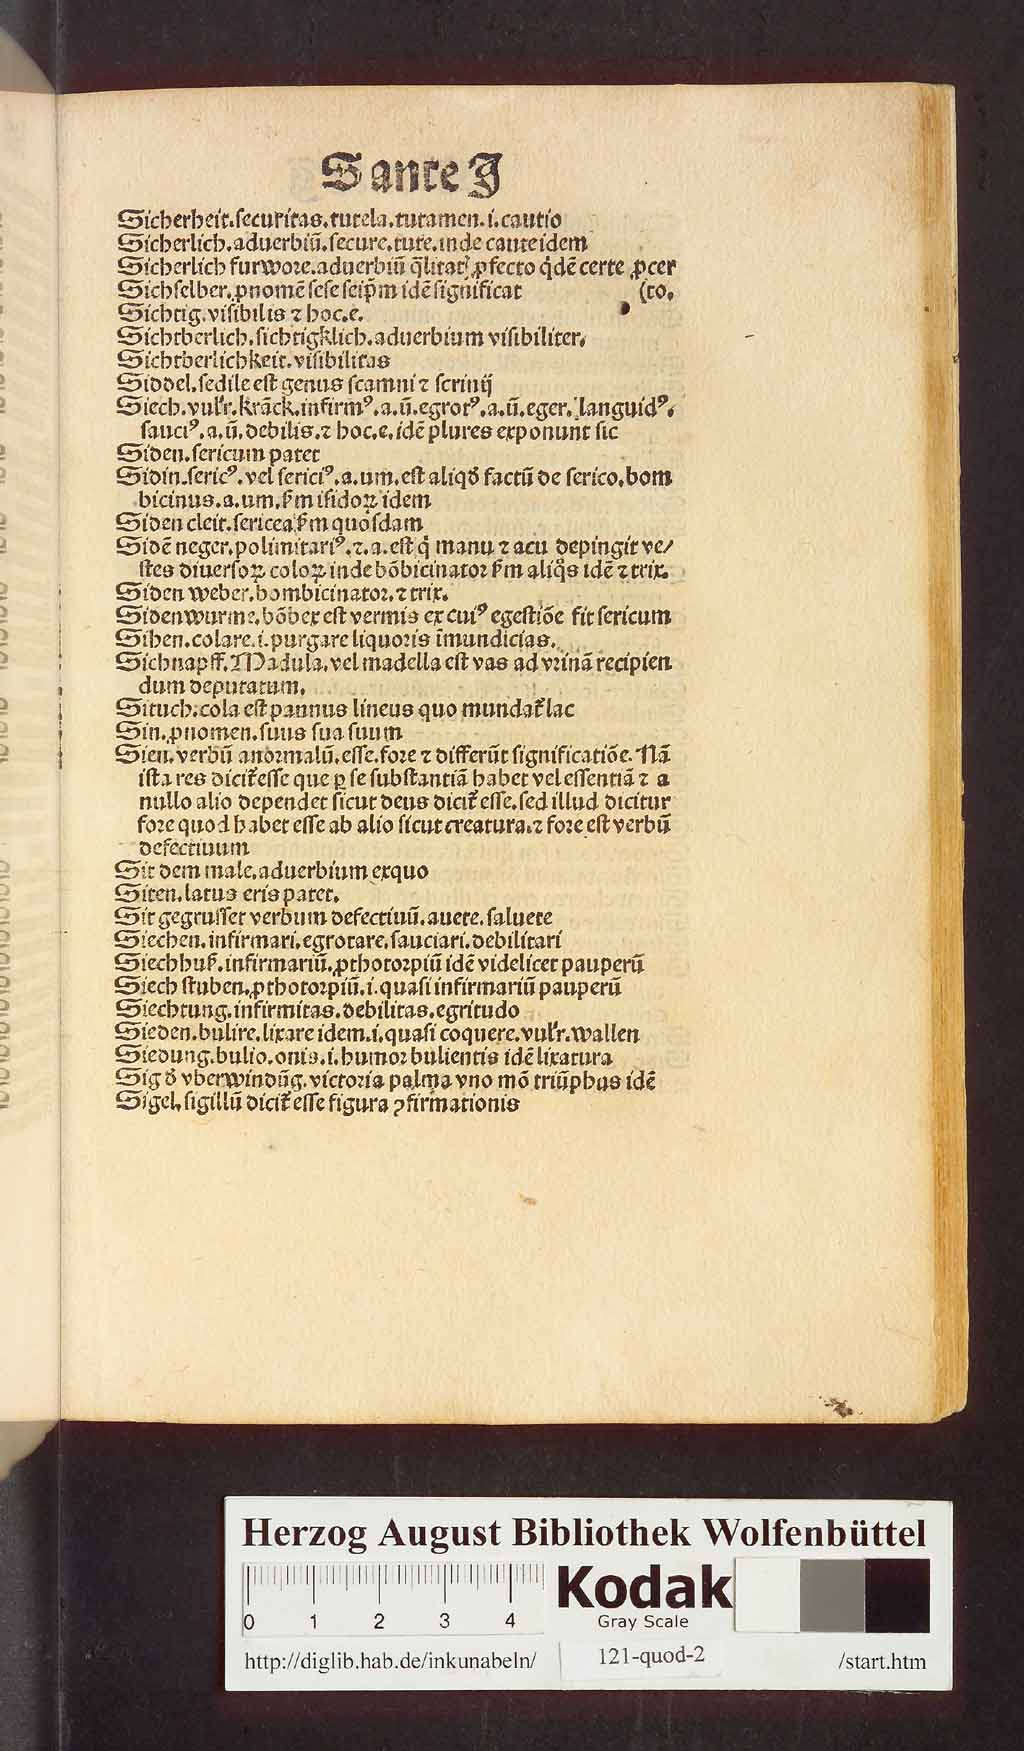 S ante J
Sicherheit.securitas.tutela.tutamen.i.cautio
Sicherlich.aduerbiū.secure.tute.inde caute idem
Sicherlich furwore.aduerbiū q̄litatꝭ ꝓfecto q̇dē certe ꝓcer
Sichselber.ꝓnomē sese seip̄m idē significat (to.
Sichtig.visibilis ⁊ hoc.e.
Sichtberlich.sichtigklich.aduerbium visibiliter.
Sichtberlichkeit.visibilitas
Siddel.sedile est genus scamni ⁊ scrinij
Siech.vulꝭr.krāck.infirmꝰ.a.ū.egrotꝰ.a.ū.eger.languidꝰ.
sauciꝰ.a.ū.debilis.⁊ hoc.e.idē plures exponunt sic
Siden.sericum patet
Sidin.sericꝰ.vel sericiꝰ.a.um.est aliqđ factū de serico.bom
bicinus.a.um.ẜm isidoꝝ idem
Siden cleit.sericea ẜm quosdam
Sidē neger.polimitariꝰ.⁊.a.est q̇ manu ⁊ acu depingit ve/
stes diuersoꝝ coloꝝ inde bōbicinator ẜm aliq̊s idē ⁊ trix.
Siden weber.bombicinator.⁊ trix.
Sidenwurme.bōbex est vermis ex cuiꝰ egestiōe fit sericum
Sihen.colare.i.purgare liquoris īmundicias.
Sichnapff.Madula.vel madella est vas ad vrinā recipien
dum deputatum.
Situch.cola est pannus lineus quo mundat᷑ lac
Sin.ꝓnomen.suus sua suum
Sien.verbū anormalū.esse.fore ⁊ differūt significatiōe.Nā
ista res dicit᷑ esse que ꝑ se substantiā habet vel essentiā ⁊ a
nullo alio dependet sicut deus dicit᷑ esse.sed illud dicitur
fore quod habet esse ab alio sicut creatura.⁊ fore est verbū
defectiuum
Sit dem male.aduerbium exquo
Siten.latus eris patet.
Sit gegrusset verbum defectiuū.auete.saluete
Siechen.infirmari.egrotare.sauciari.debilitari
Siechhuß.infirmariū.ꝓthotorpiū idē videlicet pauperū
Siech stuben.ꝓthotorpiū.i.quasi infirmariū pauperū
Siechtung.infirmitas.debilitas.egritudo
Sieden.bulire.lixare idem.i.quasi coquere.vulꝭr.wallen
Siedung.bulio.onis.i.humor bulientis idē lixatura
Sig đ vberwindūg.victoria palma vno mō triūphus idē
Sigel.sigillū dicit᷑ esse figura ꝯfirmationis
Herzog August Bibliothek Wolfenbüttel
0 1 2 3 4
Kodak
Gray Scale
http://diglib.hab.de/inkunabeln/ 121-quod-2 /start.htm